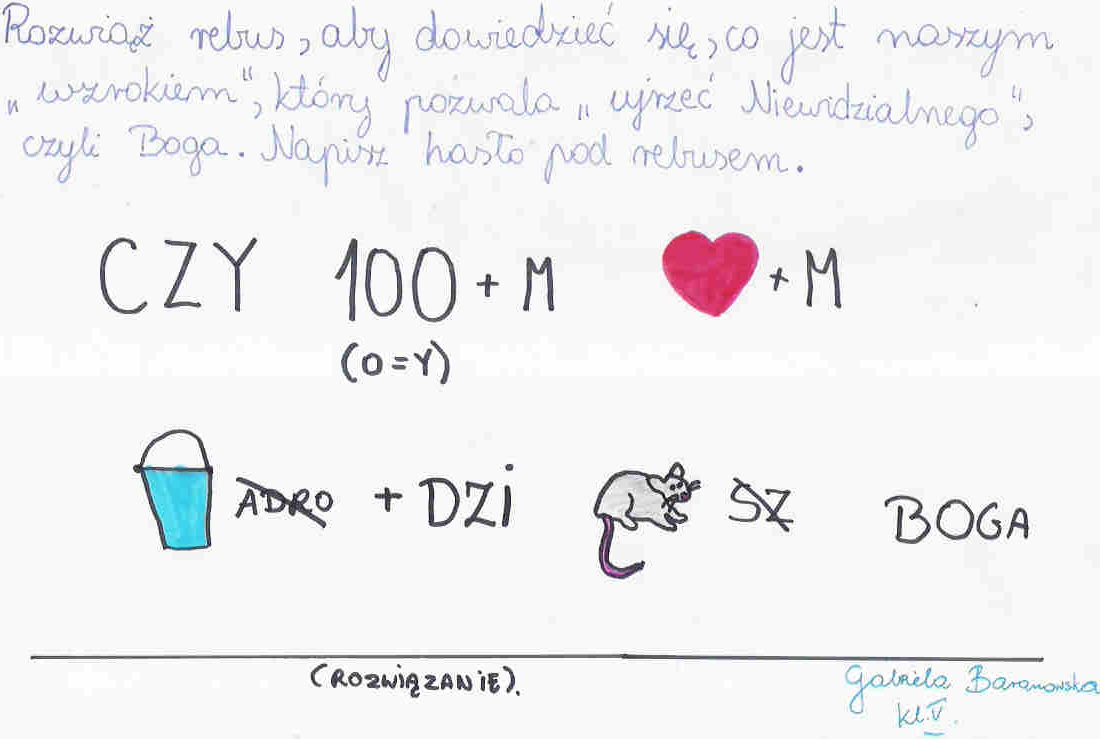 Rozwiąż rebus, aby dowiedzieć się, co jest naszym
„wzrokiem", który pozwala „ujrzeć Niewidzialnego",
czyli Boga. Napisz hasło pod rebusem.
CZY 100 + M + M
(O=Y)
ADRO + DZi SZ BOGA
(ROZWIĄZANIE).
Gabriela Baranowska
kl. V.